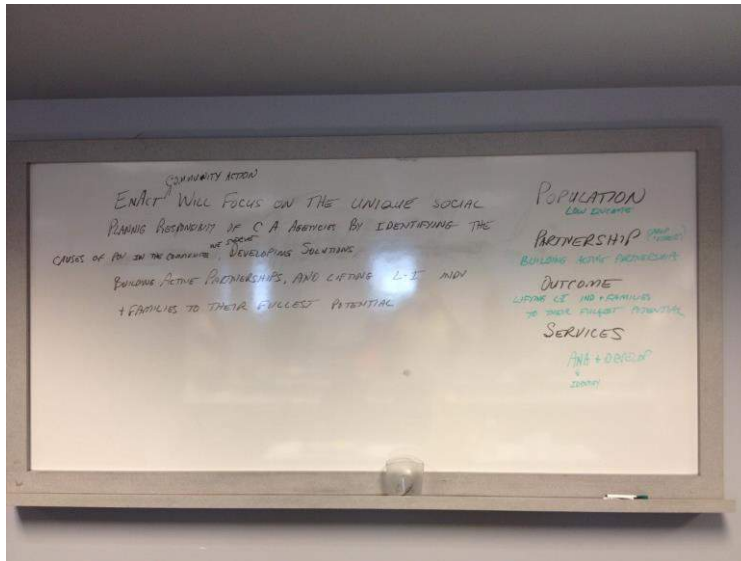 COMMUNITY ACTION
ENACT WILL FOCUS ON THE UNIQUE SOCIAL
PLANNIG RESPONSIBILITY OF C A AGENCIES BY IDENTIFYING THE
WE SERVE
CAUSES OF POV. IN THE COMMUNITIES, DEVELOPING SOLUTIONS
BUILDING ACTIVE PARTNERSHIPS, AND LIFTING L-I INDV
+ FAMILIES TO THEIR FULLEST POTENTIAL
POPULATION
LOW INCOME
PARTNERSHIP
BUILDING ACTIVE PARTNERSHIPS
OUTCOME
LIFTING LI IND + FAMILIES
TO THEIR FULLEST POTENTIAL
SERVICES
+ DEVELOP
IDENTIFY